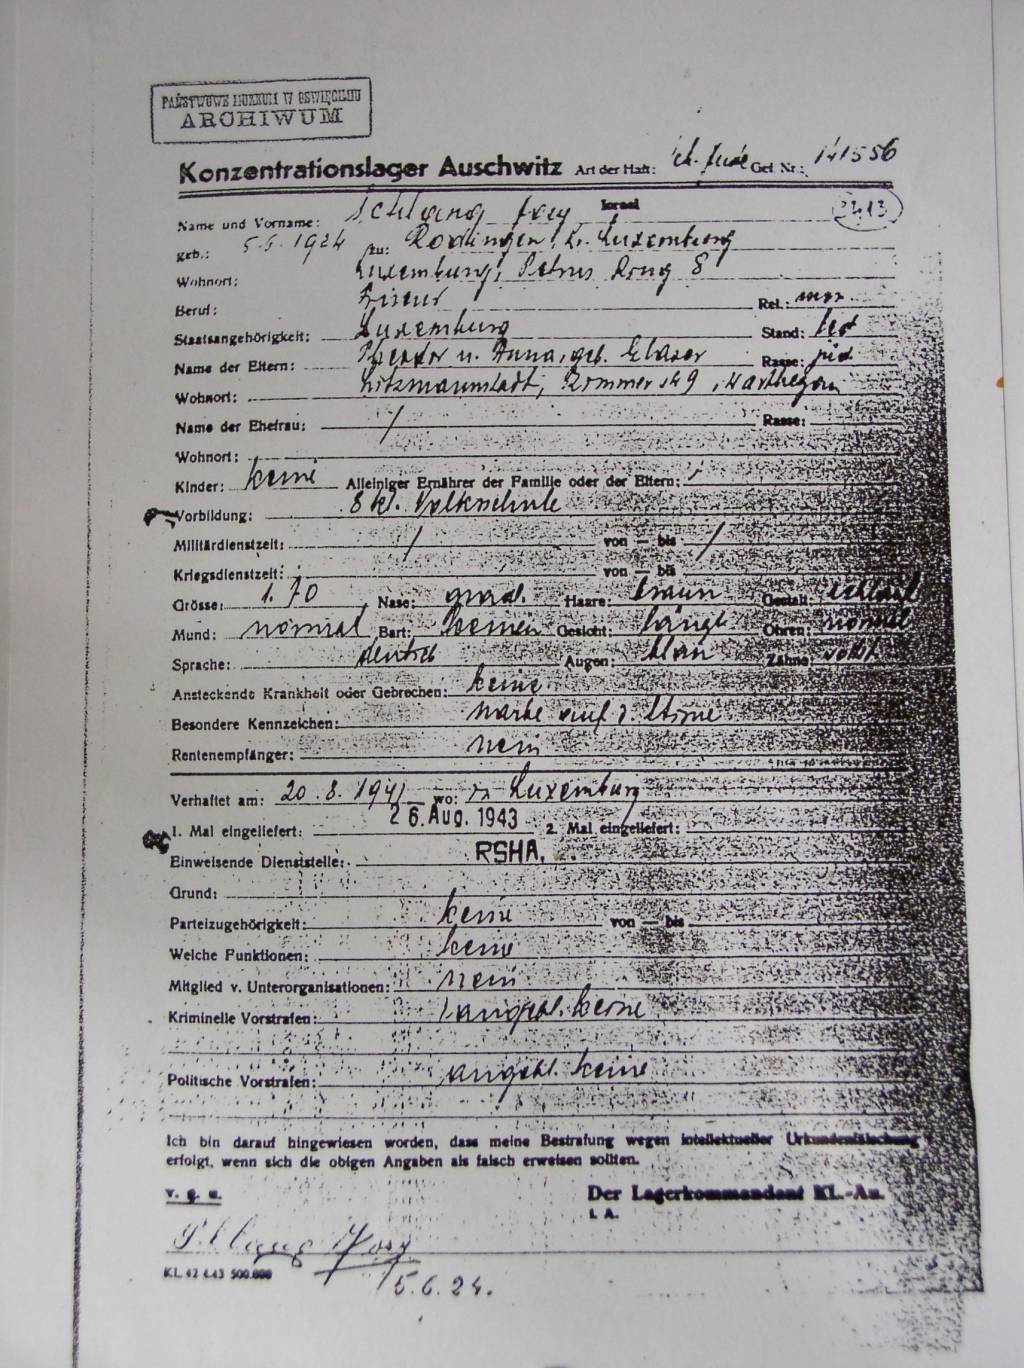 PAŃSTWOWE MUZEUM W OŚWIĘCIMIU
ARCHIWUM
Konzentrationslager Auschwitz Art der Haft: Jude Gef. Nr.: 141556
Name und Vorname: Schlang Israel 2413
geb.: 5.6.1924 zu: Rodingen, Kr. Luxemburg
Wohnort: Luxemburg, Petrus Ring 8
Beruf: Friseur Rel.: mos.
Staatsangehörigkeit: Luxemburg Stand: led
Name der Eltern: u. Anna, geb. Glaser Rasse: jüd
Wohnort: Litzmannstadt, 9, Warthegau
Name der Ehefrau: / Rasse:
Wohnort:
Kinder: keine Alleiniger Ernährer der Familie oder der Eltern: /
Vorbildung: 8 kl. Volksschule
Militärdienstzeit: / von — bis /
Kriegsdienstzeit: von — bis
Grösse: 1.70 Nase: grad. Haare: braun Gestalt: schlank
Mund: normal Bart: keinen Gesicht: längl Ohren: normal
Sprache: deutsch Augen: blau Zähne:
Ansteckende Krankheit oder Gebrechen: keine
Besondere Kennzeichen: Narbe auf d. Stirne
Rentenempfänger: nein
Verhaftet am: 20.8.1941 wo: in Luxemburg
1. Mal eingeliefert: 26. Aug. 1943 2. Mal eingeliefert:
Einweisende Dienststelle: RSHA.
Grund:
Parteizugehörigkeit: keine von — bis
Welche Funktionen: keine
Mitglied v. Unterorganisationen: nein
Kriminelle Vorstrafen: angebl. keine
Politische Vorstrafen: angebl. keine
Ich bin darauf hingewiesen worden, dass meine Bestrafung wegen intellektueller Urkundenfälschung
erfolgt, wenn sich die obigen Angaben als falsch erweisen sollten.
v. g. u. Der Lagerkommandant KL.-Au.
I. A.
Schlang
KL. 42 4.43 500.000
5.6.24.